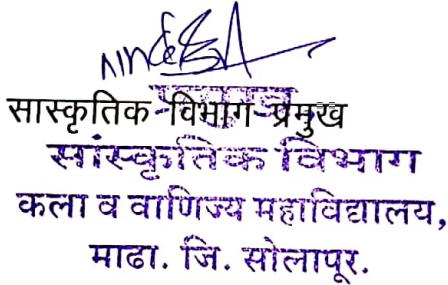 सास्कृतिक विभाग प्रमुख
सांस्कृतिक विभाग
कला व वाणिज्य महाविद्यालय,
माढा. जि. सोलापूर.